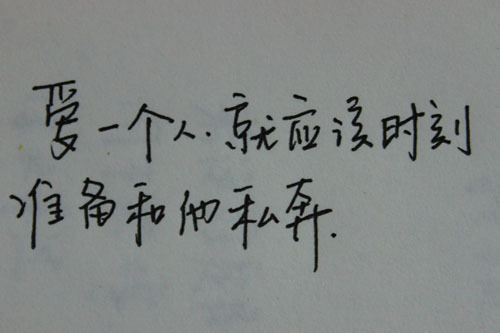 爱一个人.就应该时刻
准备和他私奔.